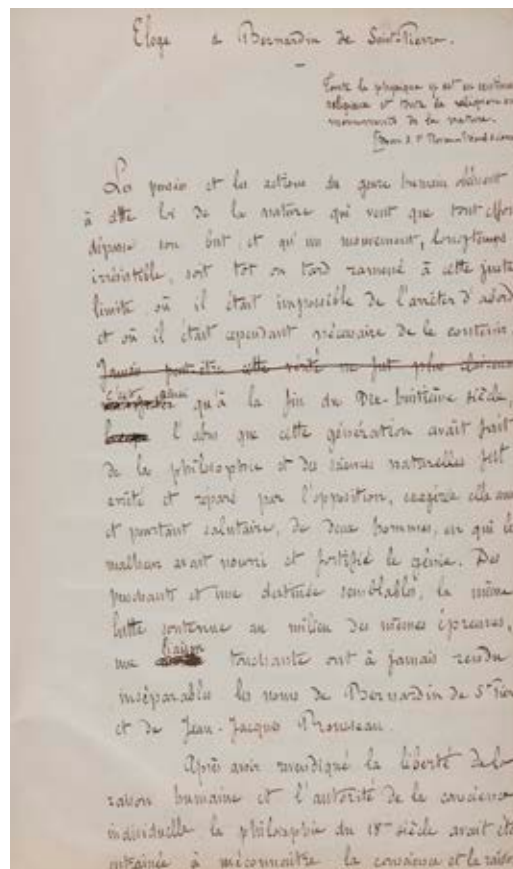 Eloge de Bernardin de Saint-Pierre.
Toute la physique y est en sentiment
religieux et toute la religion en
monuments de la nature.
La pensée et les actions du genre humain obéissent
à cette loi de la nature qui veut que tout effort
dépasse son but, et qu'un mouvement, longtemps
irrésistible, soit tôt ou tard ramené à cette juste
limite où il était impossible de l'arrêter d'abord
et où il était cependant nécessaire de le contenir.
Jamais peut-être cette vérité ne fut plus
c'est ainsi qu'à la fin du Dix-huitième siècle,
l'abus que cette génération avait fait
de la philosophie et des sciences naturelles fut
arrêté et réparé par l'opposition, exagérée elle aussi
et pourtant salutaire, de deux hommes, en qui le
malheur avait nourri et fortifié le génie. Des
penchants et une destinée semblables, la même
lutte soutenue au milieu des mêmes épreuves,
une liaison touchante ont à jamais rendu
inséparables les noms de Bernardin de St Pierre
et de Jean-Jacques Rousseau.
Après avoir revendiqué la liberté de la
raison humaine et l'autorité de la conscience
individuelle la philosophie du 18me siècle avait été
entraînée à méconnaître la conscience et la raison